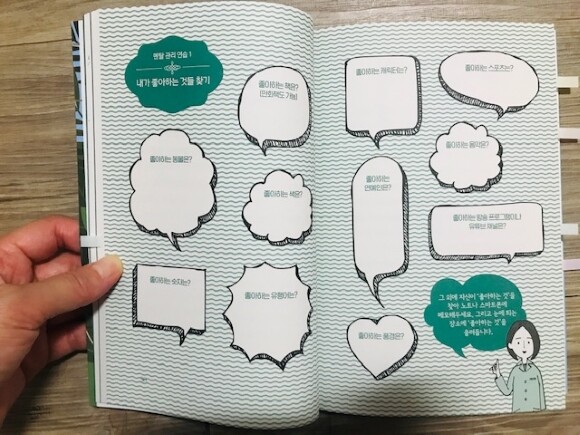 멘탈 관리 연습 1
내가 좋아하는 것들 찾기
좋아하는 책은?
(만화책도 가능)
좋아하는 동물은?
좋아하는 색은?
좋아하는 숫자는?
좋아하는 유행어는?
좋아하는 캐릭터는?
좋아하는 스포츠는?
좋아하는 음악은?
좋아하는
연예인은?
좋아하는 방송 프로그램이나
유튜브 채널은?
좋아하는 풍경은?
그 외에 자신이 '좋아하는 것'을
찾아 노트나 스마트폰에
메모해두세요. 그리고 눈에 띄는
장소에 '좋아하는 것'을
놓아둡니다.